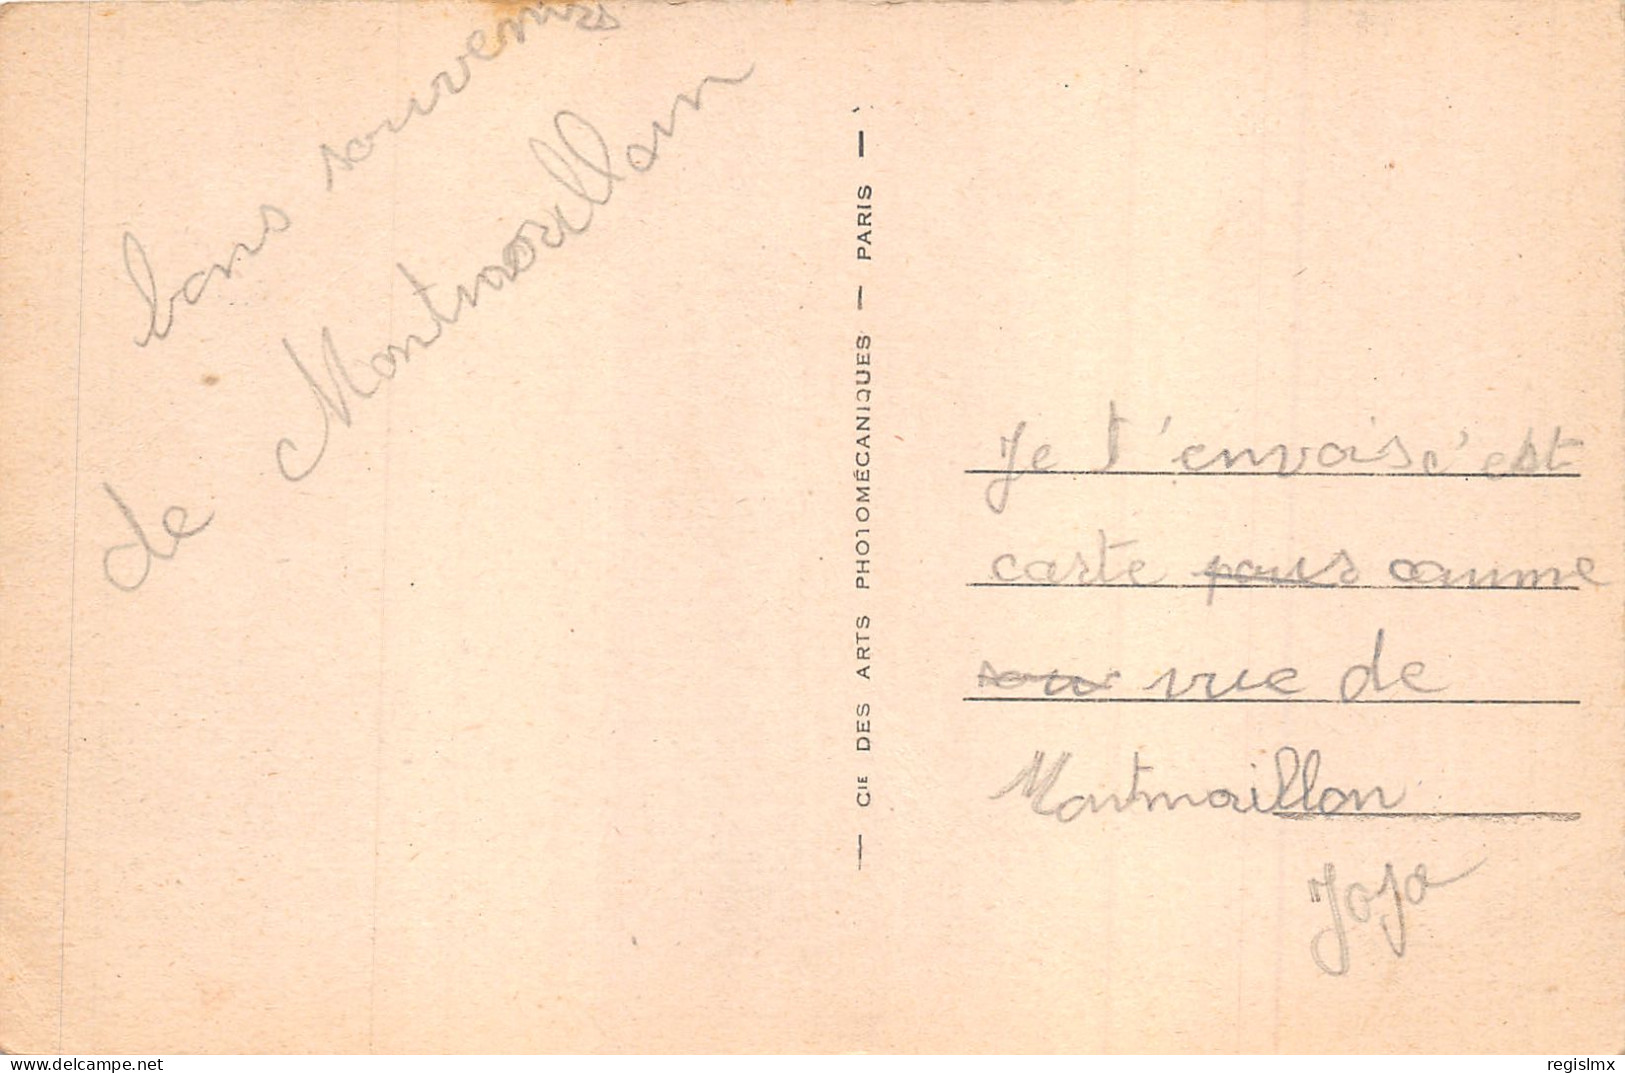 bons souvenirs
de Montmaillon
— CIE DES ARTS PHOTOMÉCANIQUES — PARIS —
Je t'envois c'est
carte pour comme
sou vue de
Montmaillon
Jojo
regislmx